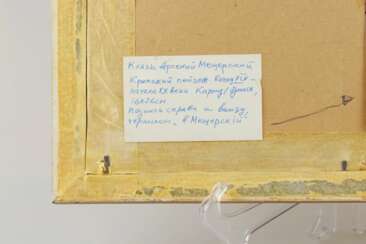 Князь Арсений Мещерский
Крымский пейзаж конца 19 -
начала 20 века Картон/бумага,
подпись справа и внизу
чернилом. "А Мещерский"